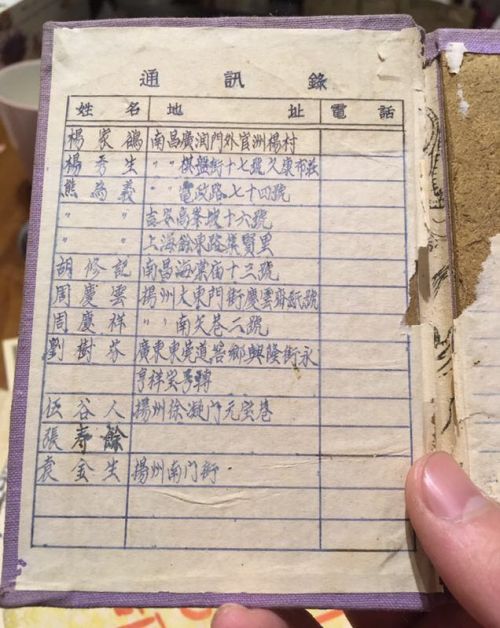 通訊錄
姓名 地址 電話
楊家鴿 南昌廣润門外官洲楊村
楊秀生 〃〃棋盤街十七號久康布莊
熊為義 〃〃電政路七十四號
〃〃 吉安高峯坡十六號
〃〃 上海餘東路集賢里
胡修記 南昌海棠庙十三號
周慶雲 揚州大東門街慶雲齋紙號
周慶祥 〃〃南矢巷二號
劉樹芬 廣東東莞道滘鄉興隆街永
亨祥宝号轉
伍谷人 揚州徐凝门元宝巷
張寿餘
袁金生 揚州南门街.